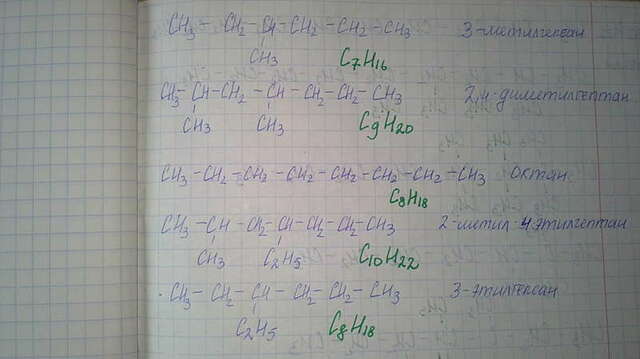 CH3 - CH2 - CH - CH2 - CH2 - CH3 3-метилгексан
CH3 C7H16
CH3 - CH - CH2 - CH - CH2 - CH2 - CH3 2,4-диметилгептан
CH3 CH3 C9H20
CH3 - CH2 - CH2 - CH2 - CH2 - CH2 - CH2 - CH3 октан
C8H18
CH3 - CH - CH2 - CH - CH2 - CH2 - CH3 2-метил-4этилгептан
CH3 C2H5 C10H22
CH3 - CH2 - CH - CH2 - CH2 - CH3 3-этилгексан
C2H5 C8H18